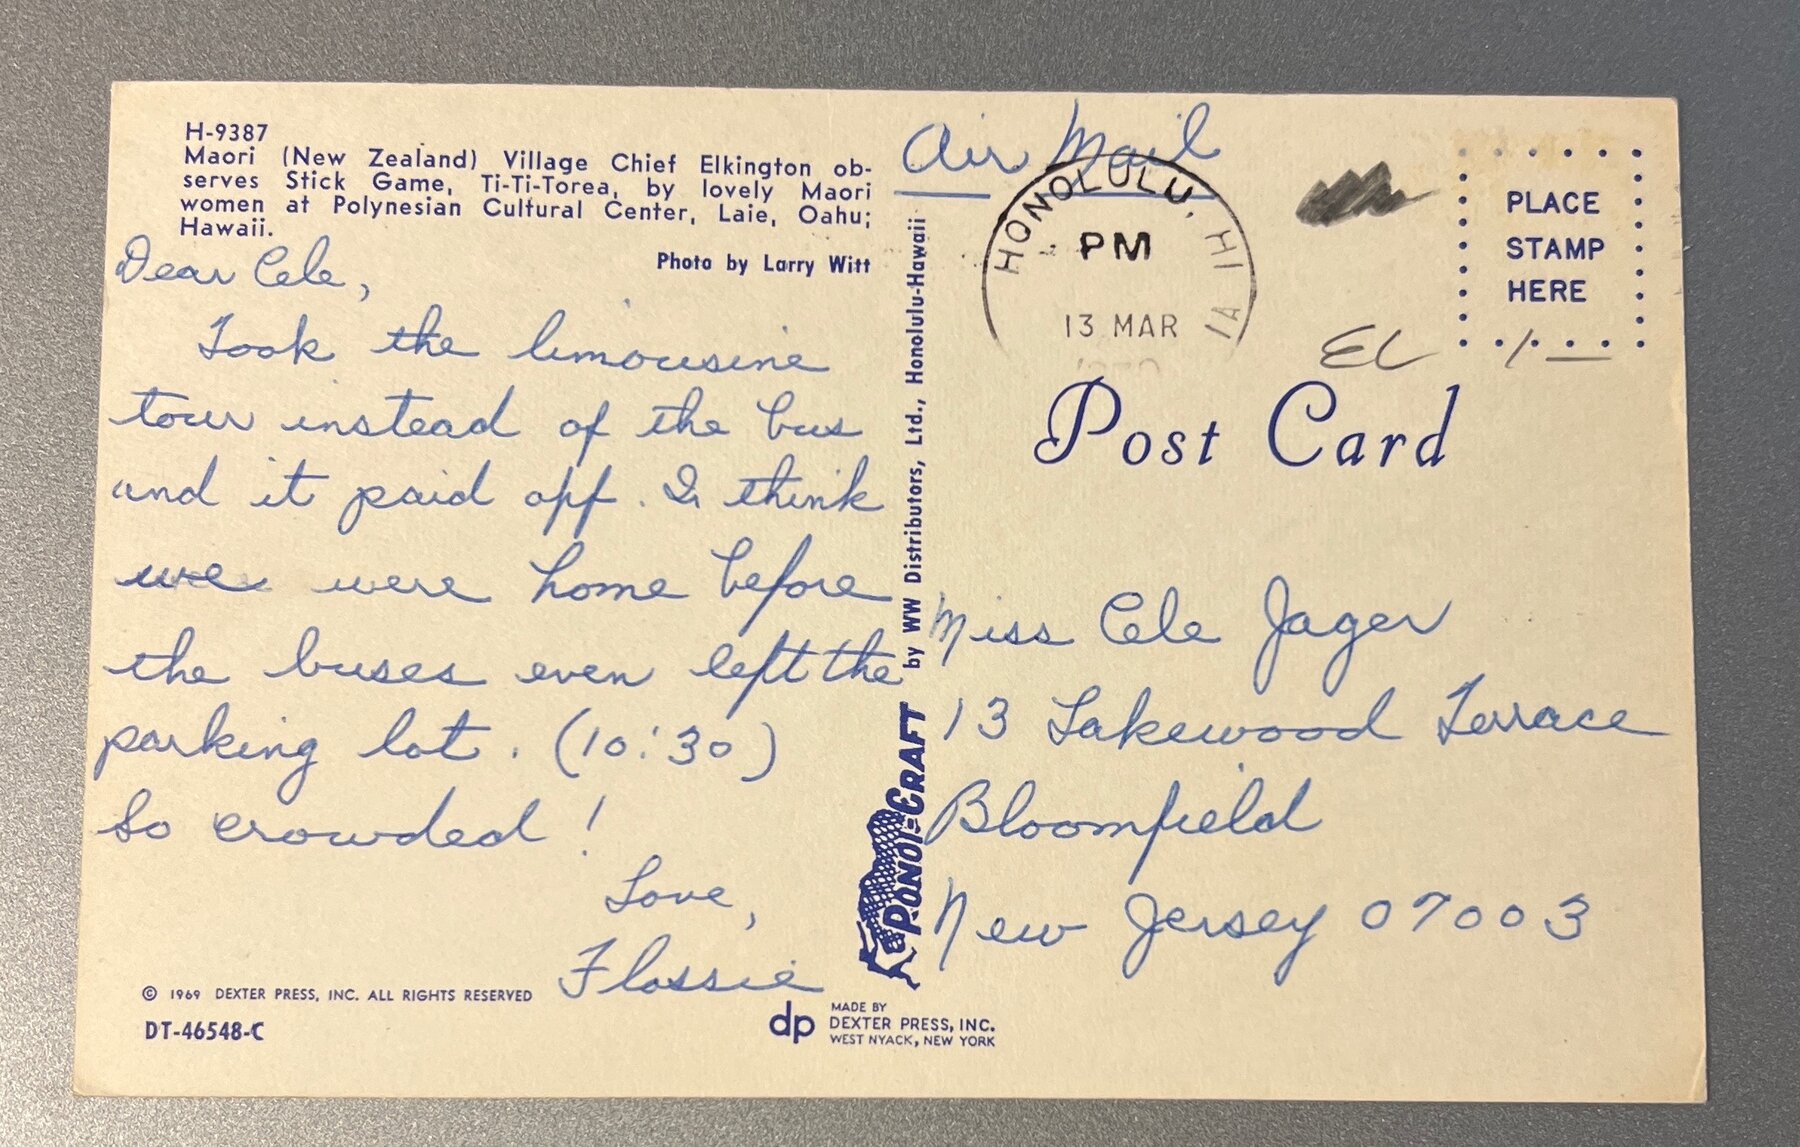 H-9387
Maori (New Zealand) Village Chief Elkington ob-
serves Stick Game, Ti-Ti-Torea, by lovely Maori
women at Polynesian Cultural Center, Laie, Oahu;
Hawaii.
Photo by Larry Witt
Dear Cele,
Took the limousine
tour instead of the bus
and it paid off. I think
we were home before
the buses even left the
parking lot. (10:30)
So crowded!
Love,
Flossie
© 1969 DEXTER PRESS, INC. ALL RIGHTS RESERVED
DT-46548-C
by WW Distributors, Ltd., Honolulu-Hawaii
PONOI-CRAFT
dp
MADE BY
DEXTER PRESS, INC.
WEST NYACK, NEW YORK
Air Mail
HONOLULU, HI
PM
13 MAR
PLACE
STAMP
HERE
EL 1/—
Post Card
Miss Cele Jager
13 Lakewood Terrace
Bloomfield
New Jersey 07003